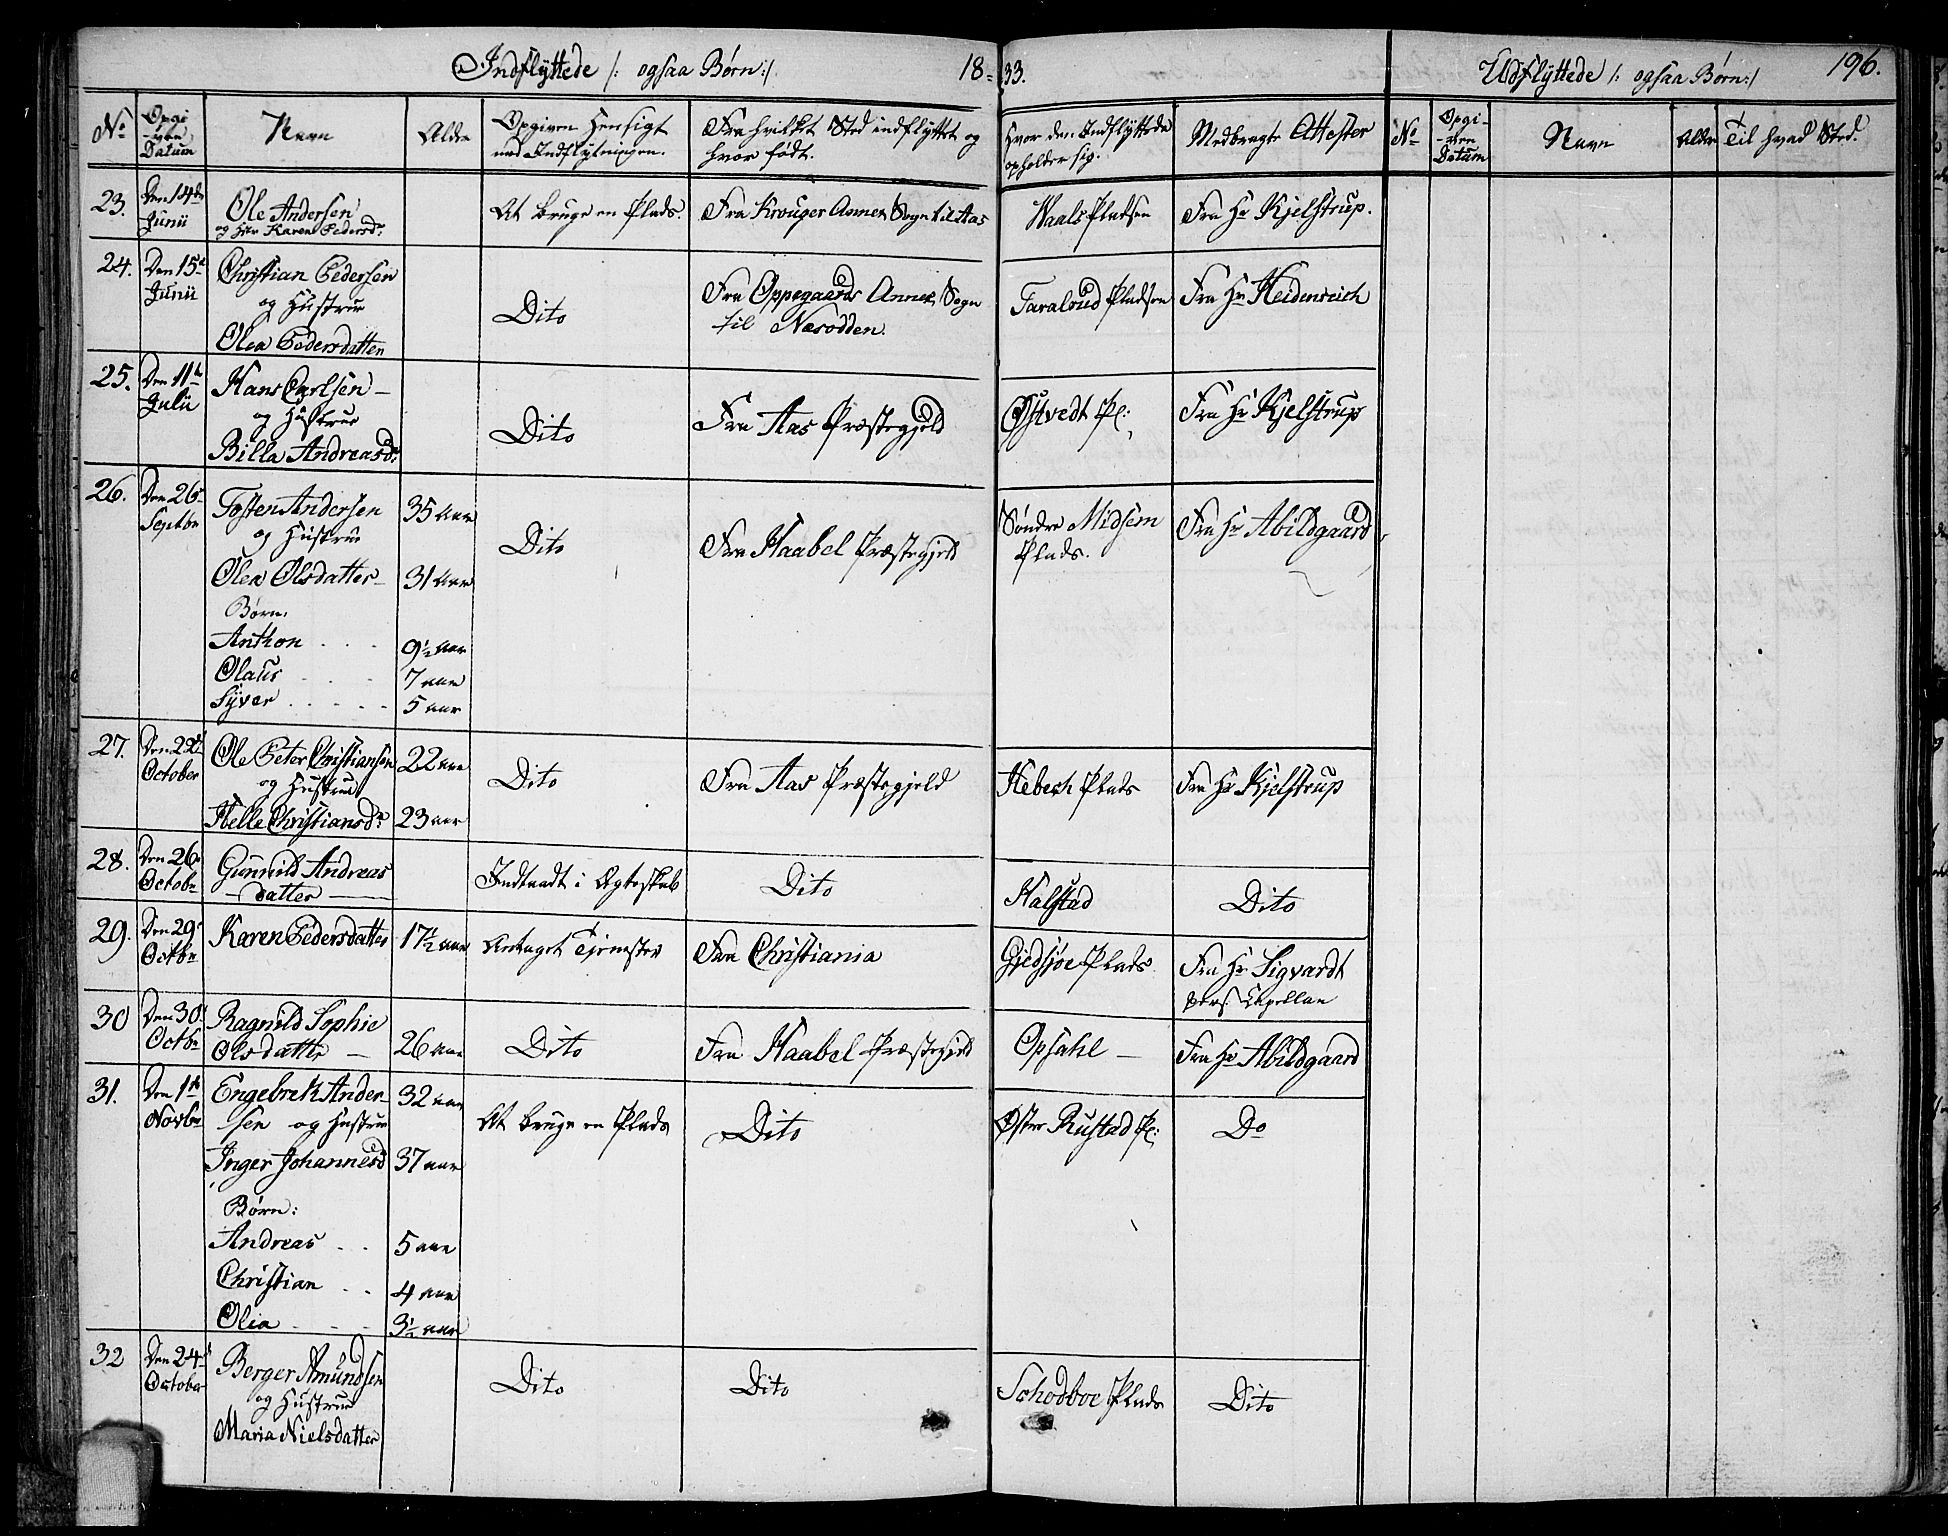 Indflyttede /: ogsaa Børn :/ 18-33. Udflyttede /: ogsaa Børn :/ 196.
No Opgi-
-ven
Datum Navn Alder Opgiven Hensigt
med Indflytningen. Fra hvilket Sted indflyttet og
hvor født. Hvor den Indflyttede
opholder sig. Medbragte Attester No Opgi-
-ven
Datum Navn Alder Til hvad Sted.
23. Den 14de
Junii Ole Andersen
og Hstr Karen Pedersdr At bruge en Plads. Fra Krouger Annex Sogn til Aas Waals Pladsen Fra Hr Kjelstrup.
24. Den 15de
Junii Christian Pedersen
og Hustrue
Olea Pedersdatten Dito Fra Oppegaards Annex Sogn
til Næsodden. Taralrud Pladsen Fra Hr Heidenreich
25. Den 11te
Julii Hans Carlsen -
og Hustrue
Billa Andreasdr Dito Fra Aas Præstegjeld Østvedt Pl: Fra Hr Kjelstrup
26. Den 26de
Septbr Tosten Andersen 35 Aar
og Hustrue
Dito Fra Haabel Præstegjeld Søndre Midsem
Plads. Fra Hr Abildgaard
Olea Olsdatter - 31 Aar
Børn.
Anthon . . . 9½ Aar
Olaus . . . 7 aar
Syver . . . . . 5 aar
27. Den 22de
October Ole Peter Christiansen 22 aar
og Hustrue
Helle Christiansdr 23 aar Dito Fra Aas Præstegjeld Hebech Plads Fra Hr Kjelstrup
28. Den 26de
Octobr Gunnild Andreas
- datter - Indtraadt i Ægteskab Dito Halstad Dito
29. Den 29de
Octbr Karen Pedersdatter 17½ aar Antaget Tjeneste Fra Christiania Gjedsjøe Plads Fra Hr Sigvardt
pers. Capellan
30 Den 30de
Octbr Ragnild Sophie
Olsdatter - 26 aar Dito Fra Haabel Præstegjeld Opsahl - Fra Hr Abildgaard
31. Den 1ste
Novbr Engebrek Ander- 32 aar
sen og Hustrue At bruge en Plads Dito Øster Rustad Pl: Do
Inger Johannesd 37 aar
Børn:
Andreas . . 5 aar
Christian . . 4 aar
Olia . . . 3½ aar
32 Den 24de
October Berger Amundsen
og Hustrue
Maria Nielsdatter Dito Dito Schodboe Plads Dito